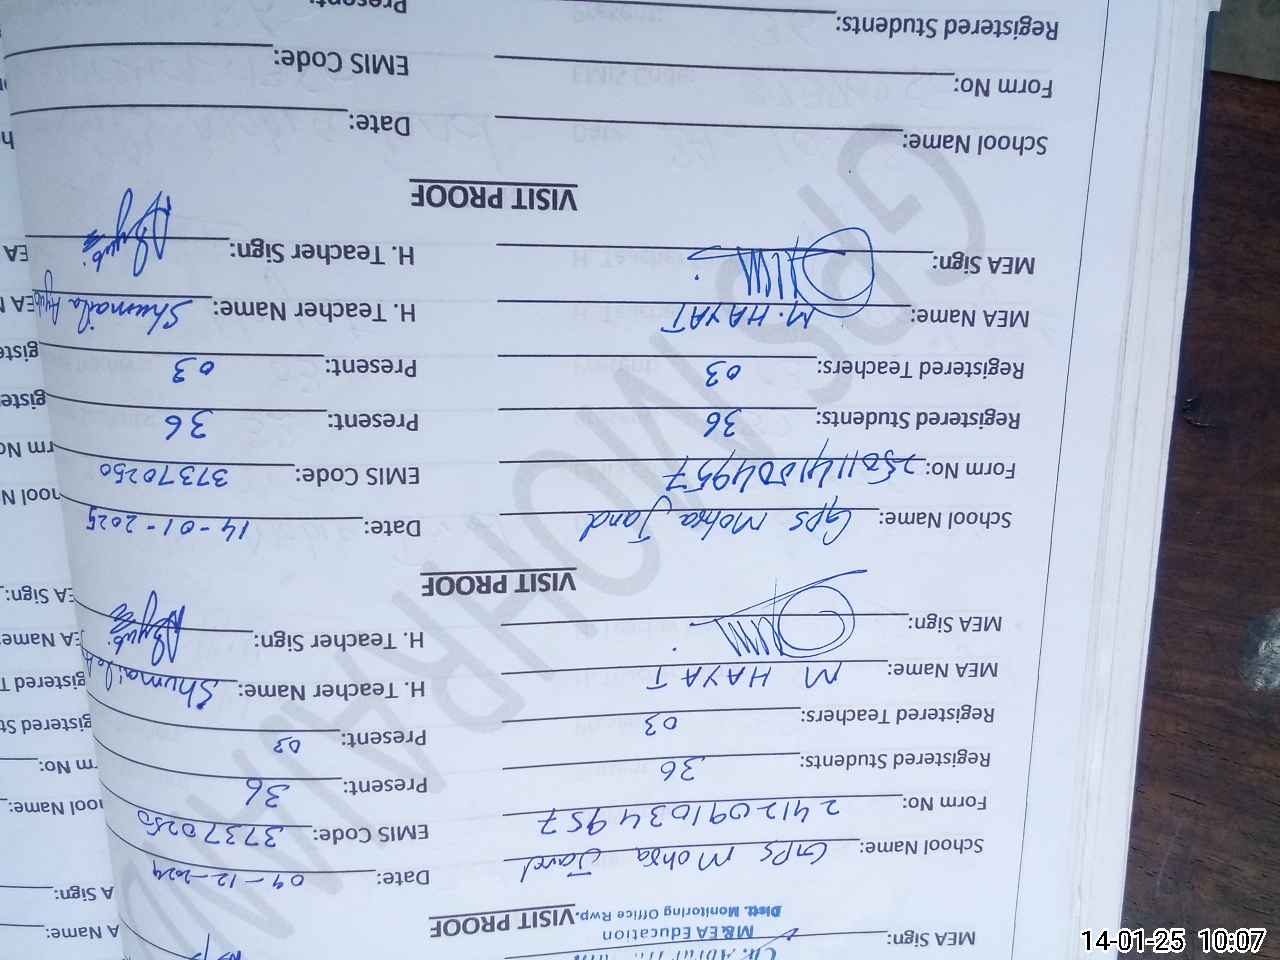 MEA Sign:
M&EA Education
Distt. Monitoring Office Rwp.
VISIT PROOF
School Name: GPS Mohra Jand Date: 09-12-2024
Form No: 2412091034957 EMIS Code: 37370250
Registered Students: 36 Present: 36
Registered Teachers: 03 Present: 03
MEA Name: M HAYAT H. Teacher Name: Shumaila
MEA Sign: H. Teacher Sign: Ayub
VISIT PROOF
School Name: GPS Mohra Jand Date: 14-01-2025
Form No: EMIS Code: 37370250
Registered Students: 36 Present: 36
Registered Teachers: 03 Present: 03
MEA Name: M. HAYAT H. Teacher Name: Shumaila Ayub
MEA Sign: H. Teacher Sign: Ayub
VISIT PROOF
School Name: Date:
Form No: EMIS Code:
Registered Students: Present:
GPS MOHRA JAND
14-01-25 10:07